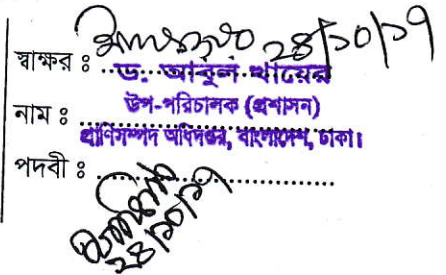 স্বাক্ষর ঃ ২৪/১০/১৭
ড. আবুল খায়ের
উপ-পরিচালক (প্রশাসন)
নাম ঃ
প্রাণিসম্পদ অধিদপ্তর, বাংলাদেশ, ঢাকা।
পদবী ঃ
২৪/১০/১৭